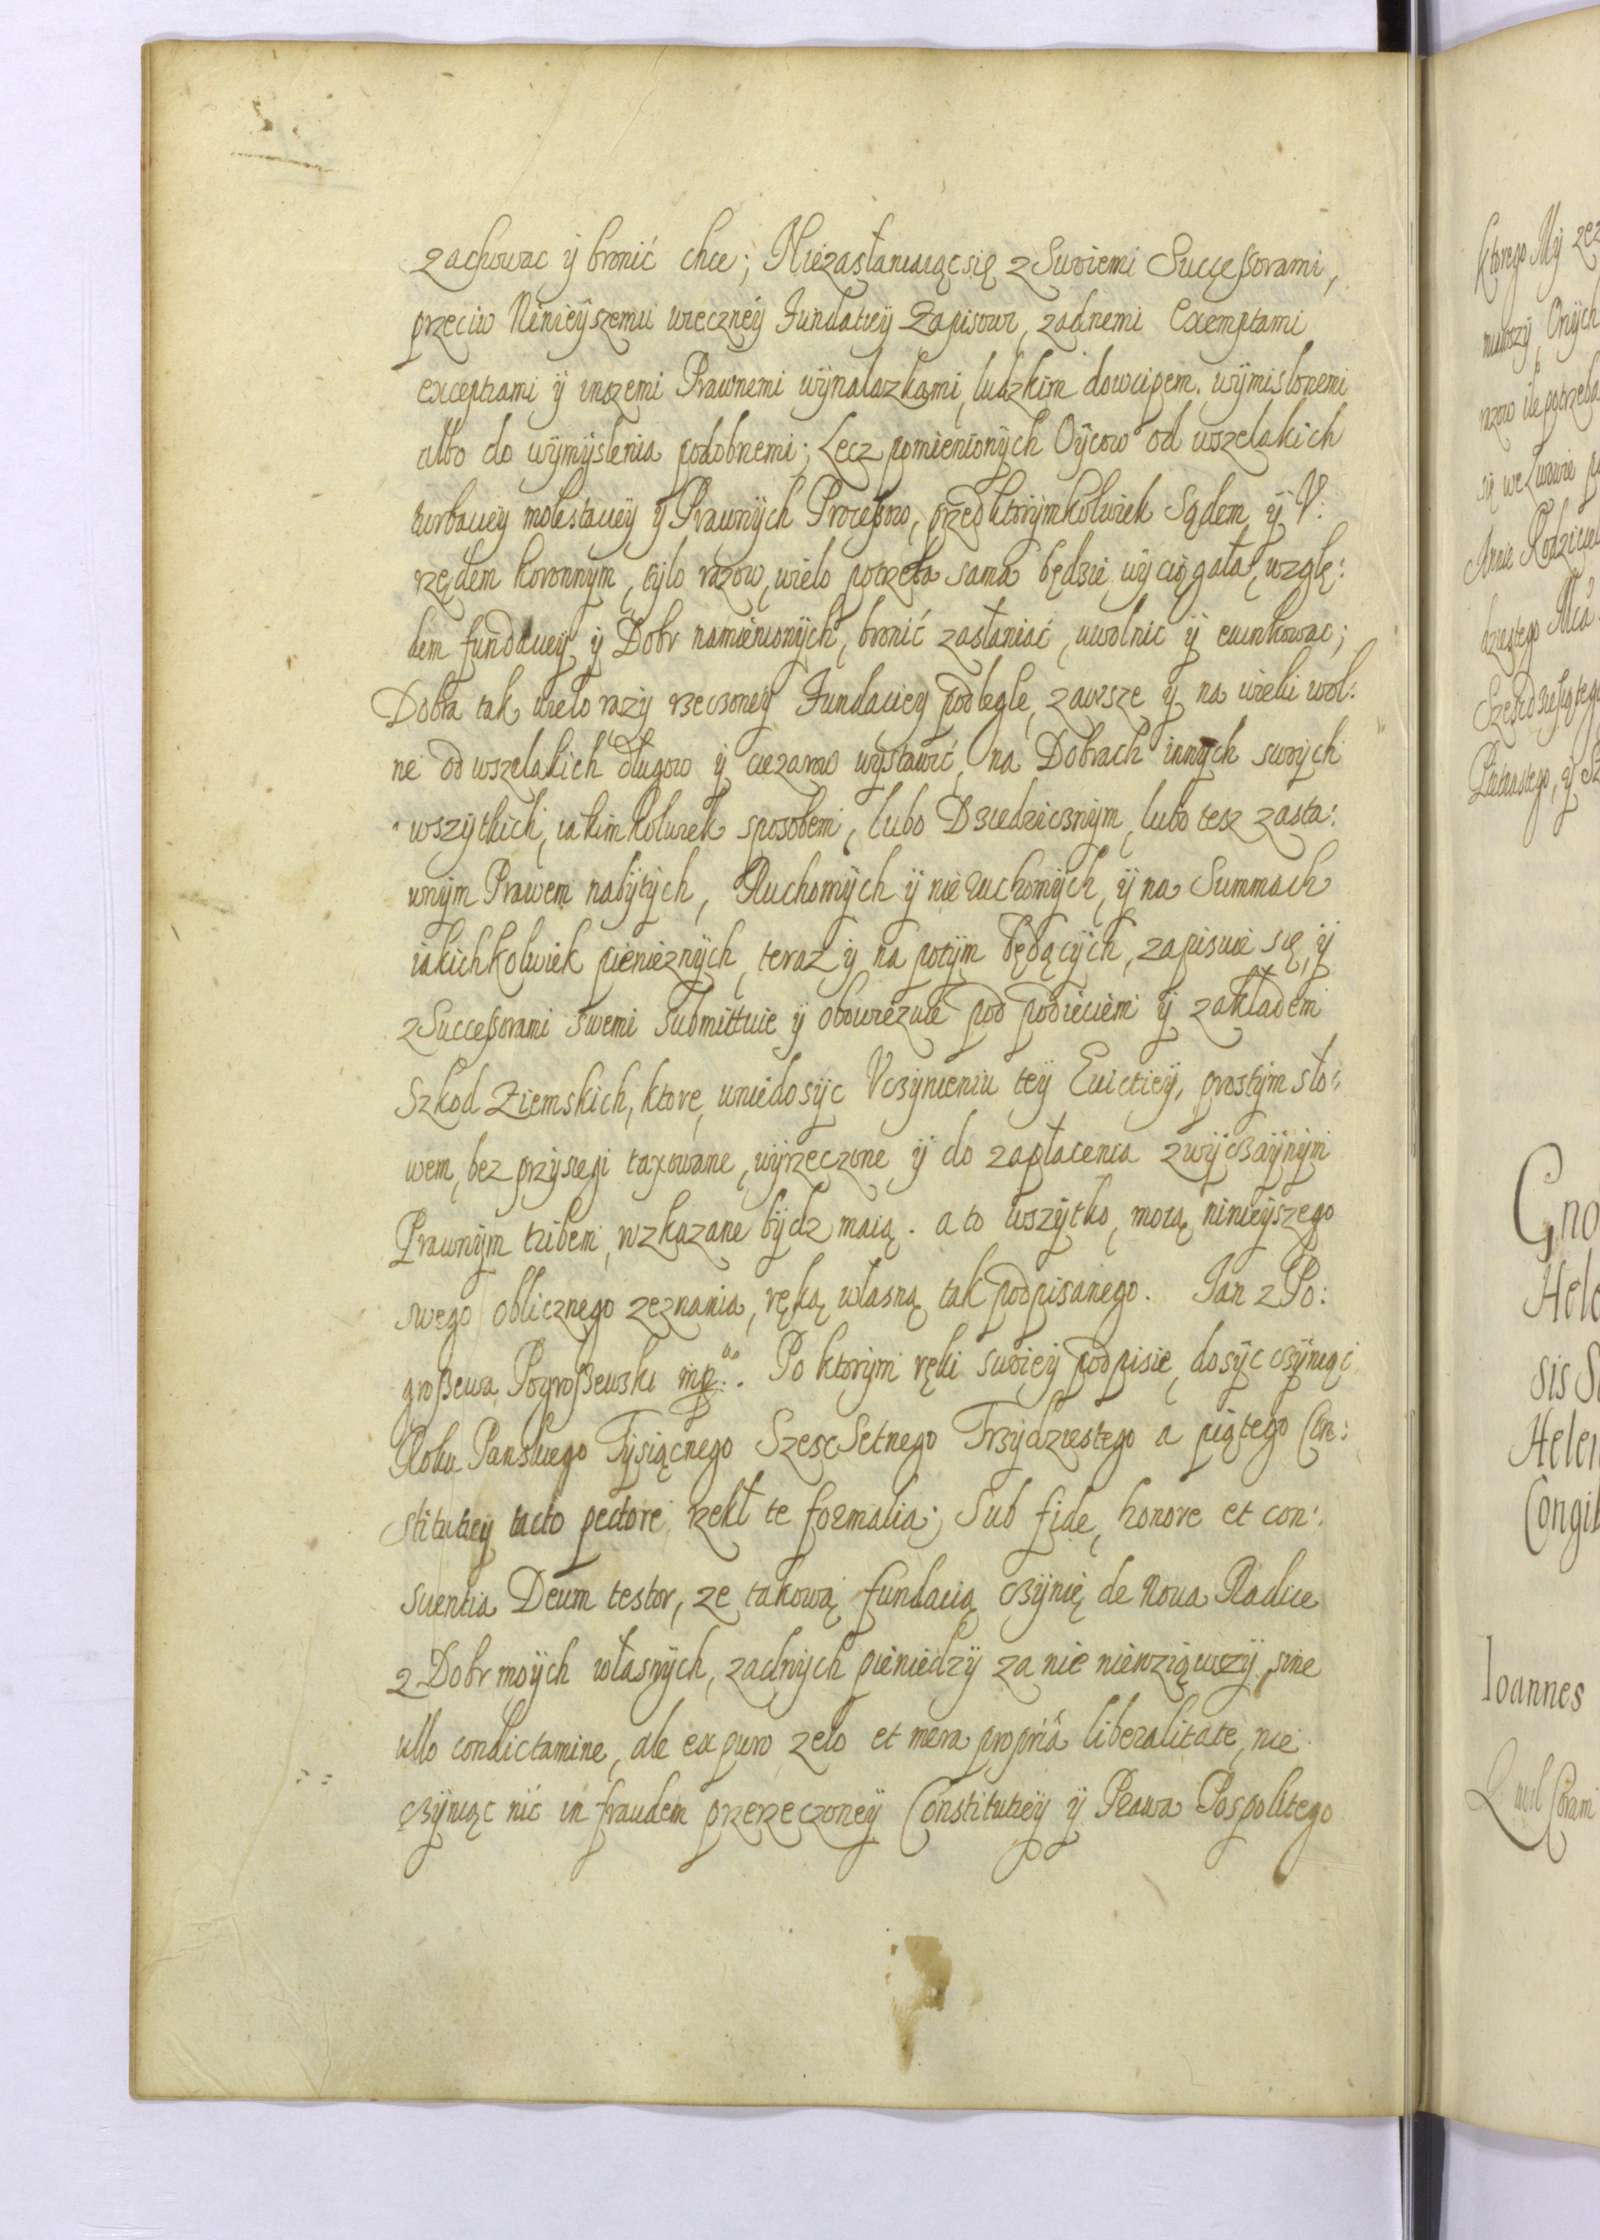 zachowac ÿ bronić chce; Niezasłaniaiąc się z Swoiemi Successorami,
przeciw Ninieÿszemu wiecznéÿ Fundatieÿ Zapisowi, zadnemi Exemptami
exceptiami ÿ inszemi Prawnemi wÿnalazkami, ludzkim dowcipem wÿmislonemi
albo do wÿmÿslenia podobnemi; Lecz pomienionÿch Oÿcow od wszelakich
turbacieÿ molestacieÿ ÿ Prawnÿch Processow, przed ktorÿmkolwiek Sądem ÿ V:
rzędem koronnÿm, tÿlo razow, wielo potrzeba sama będzie wÿciągała, wzglę:
dem fundacieÿ ÿ Dobr namienionÿch, bronić zasłaniać, uwolnic ÿ ewinkowac;
Dobra tak wielo razÿ rzeczoneÿ Fundacieÿ podległe, zawsze ÿ na wieki wol:
ne od wszelakich długow ÿ ciezarow wÿstawić, na Dobrach innÿch swoÿch
wszÿtkich, iakimkolwiek sposobem, lubo Dziedzicznÿm, lubo tesz zasta:
wnÿm Prawem nabÿtÿch, Ruchomÿch ÿ nie ruchomÿch, ÿ na Summach
iakichkolwiek pienieznÿch, teraz ÿ na potÿm będącÿch, zapisuie się, ÿ
z Successorami swemi submittuie ÿ obowiezuie pod podięciem ÿ zakładem
Szkod Ziemskich, ktore, wniedosÿc Vczÿnieniu teÿ Euictieÿ, prostÿm sło:
wem, bez przÿsiegi taxowane, wÿrzeczone ÿ do zapłacenia zwÿczaÿnÿm
Prawnÿm tribem, wzkazane bÿdz maią. a to wszÿtko, mocą ninieÿszego
swego oblicznego zeznania, ręką własną tak podpisanego. Jan z Po:
groszewa Pogroszewski mp. Po ktorÿm ręki swoieÿ podpisie, dosÿc czÿniąc
Roku Panskiego Tÿsiącnego SzescSetnego Trzÿdziestego a piątego Con:
stitutieÿ tacto pectore rzekł te formalia; Sub fide, honore et con:
scientia Deum testor, ze takową fundacią czÿnię de Noua Radice
z Dobr moÿch własnÿch, zadnÿch pieniedzÿ za nie niewziąwszÿ, sine
ullo condictamine, ale ex puro zelo et mera propriâ liberalitate, nie
czÿniąc nic in fraudem przerzeczoneÿ Constitutieÿ ÿ Prawa Pospolitego
ktorego Mÿ
Onÿch
Gno
Sis
Congit
Ioannes
Coram